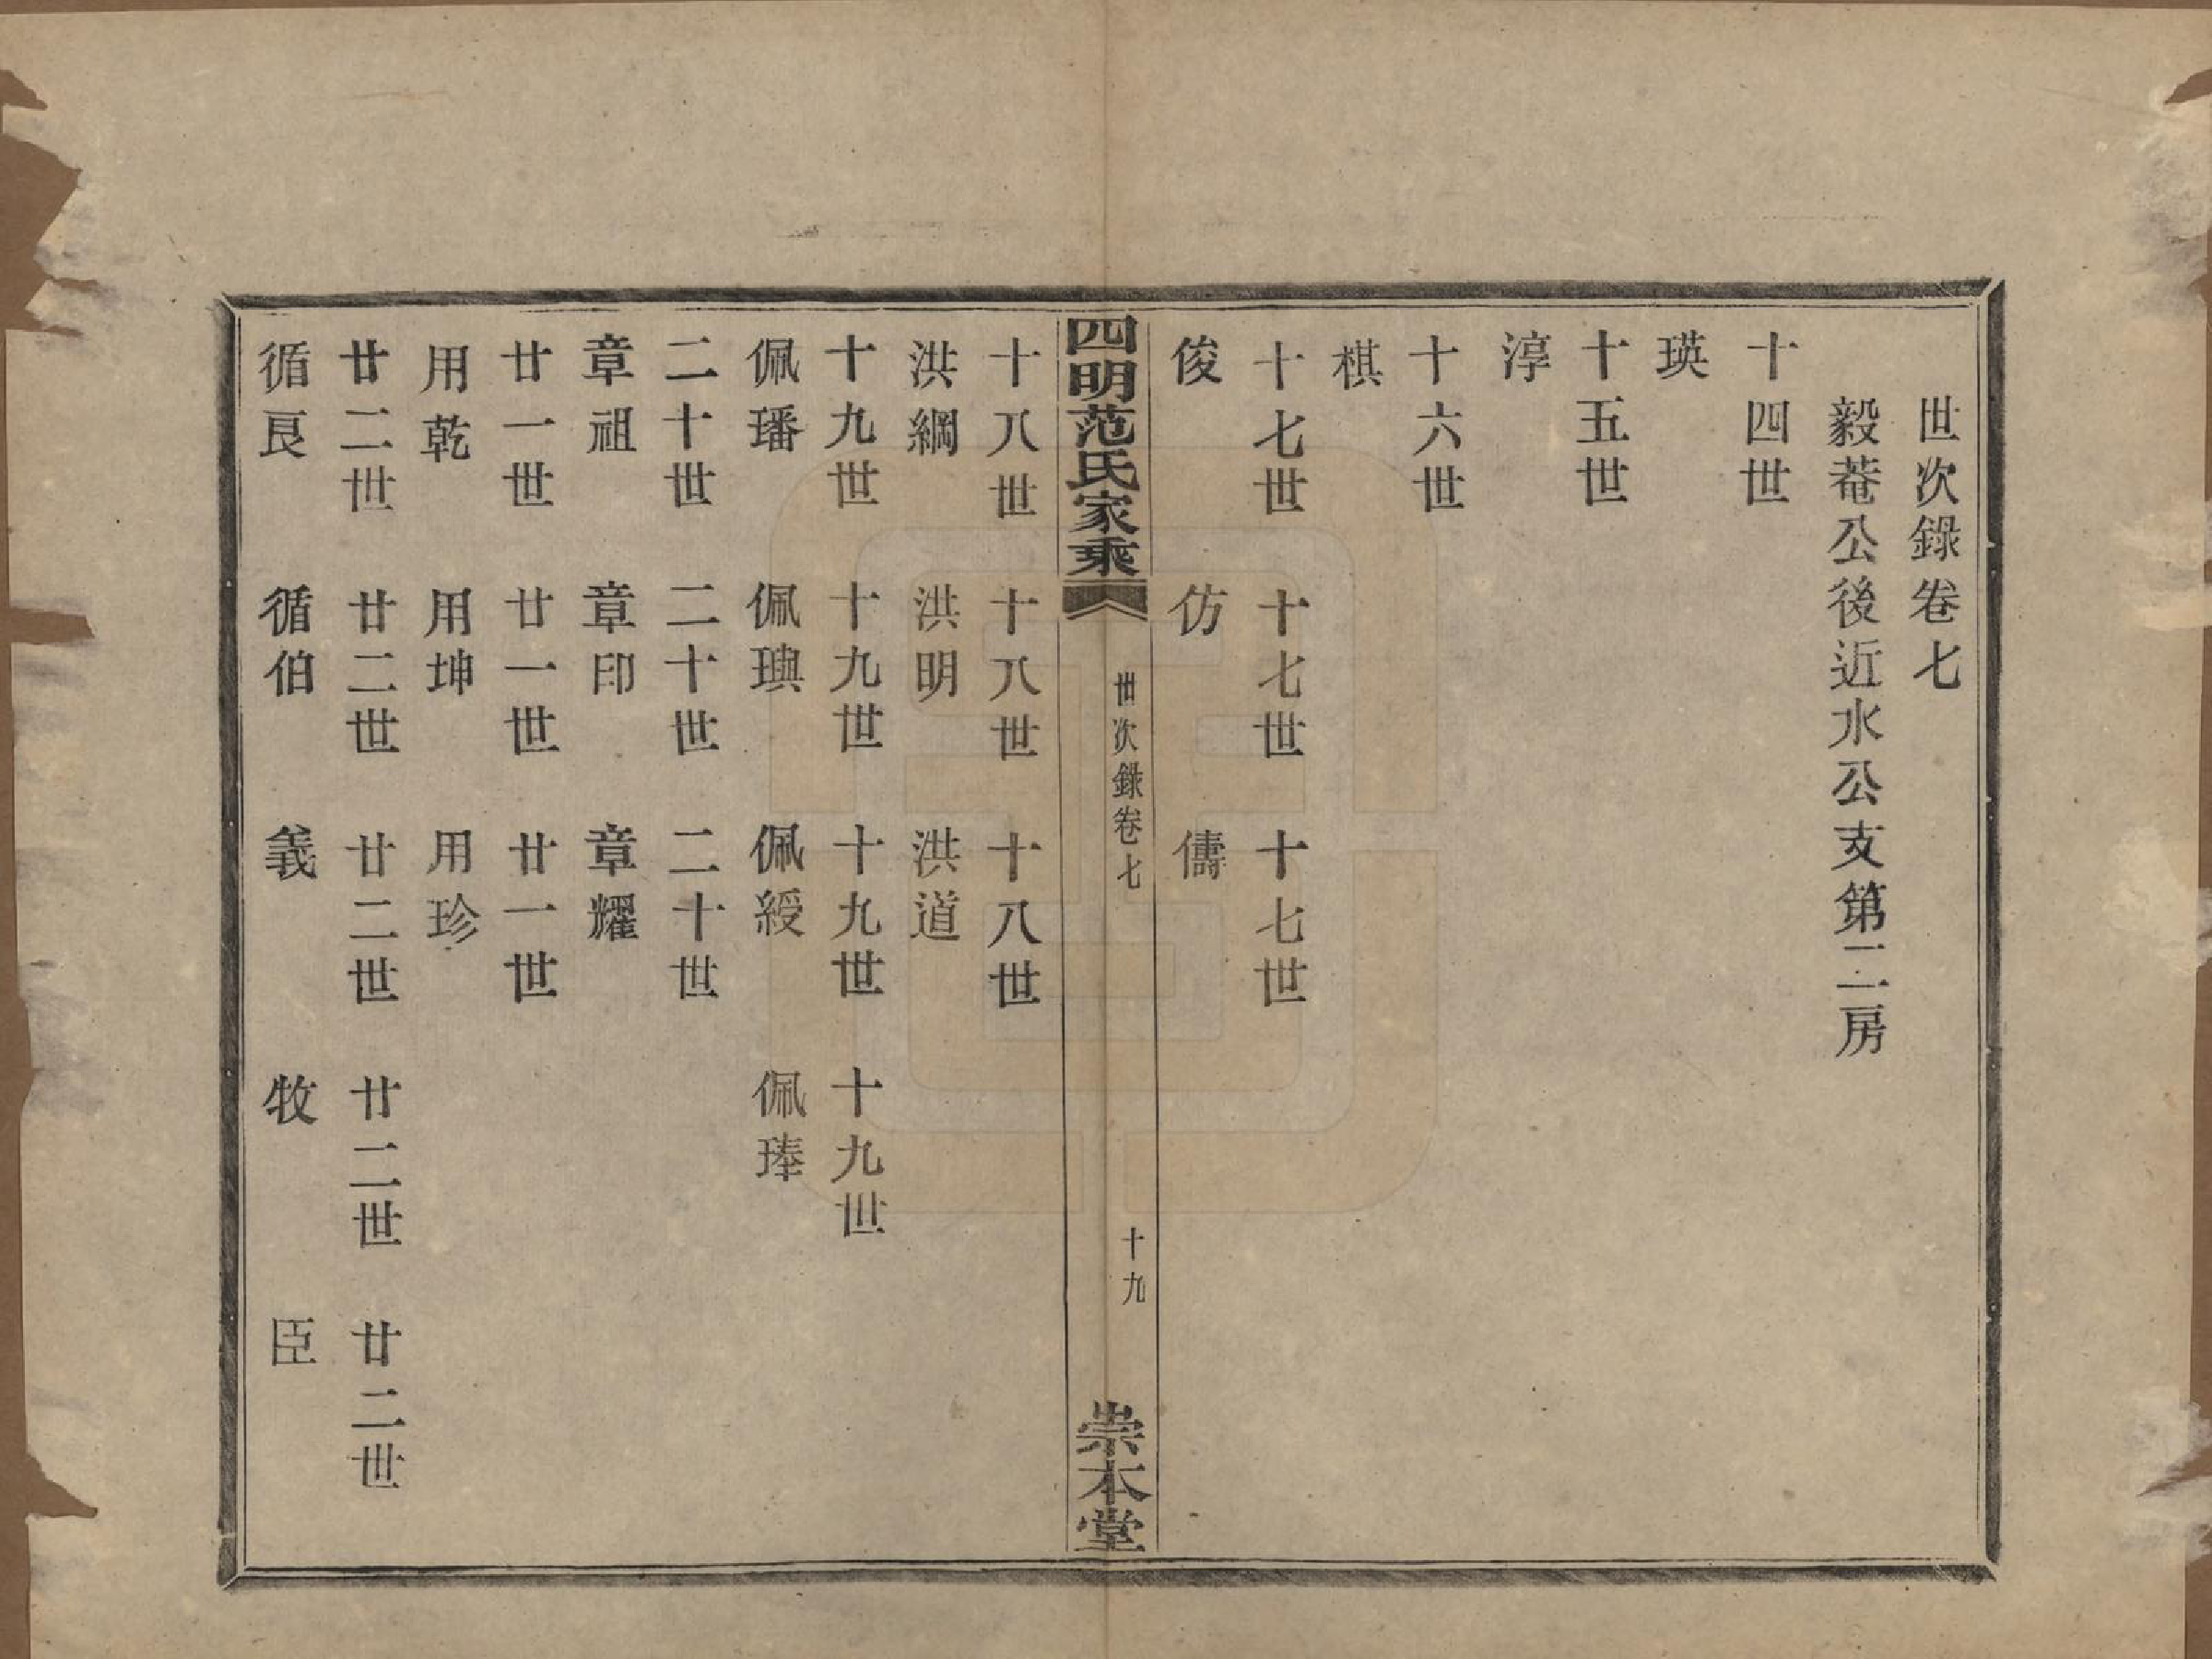 世次錄卷七
毅菴公後近水公支第二房
十四世
瑛
十五世
淳
十六世
棋
十七世　十七世　十七世
俊　仿　儔
四明范氏家乘　世次錄卷七　十九　崇本堂
十八世　十八世　十八世
洪綱　洪明　洪道
十九世　十九世　十九世　十九世
佩璠　佩璵　佩綬　佩琫
二十世　二十世　二十世
章祖　章印　章耀
廿一世　廿一世　廿一世
用乾　用坤　用珍
廿二世　廿二世　廿二世　廿二世　廿二世
循良　循伯　義　牧　臣